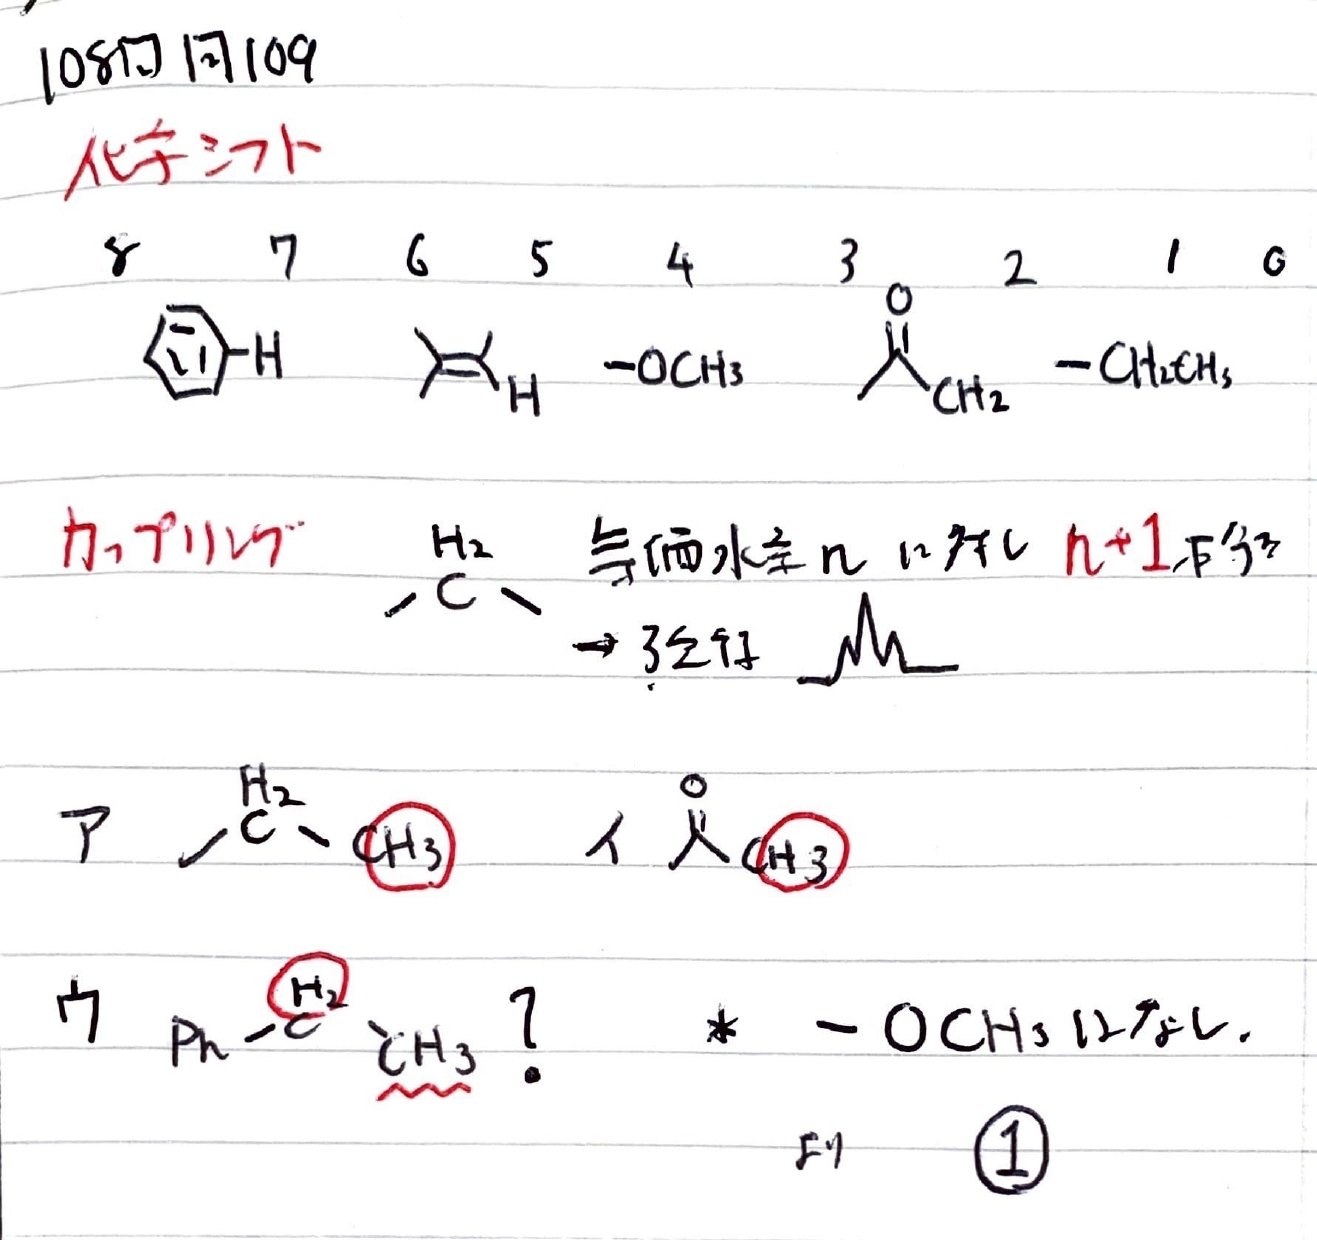 108回 問109
化学シフト
8 7 6 5 4 3 2 1 0
H H -OCH3 O CH2 -CH2CH3
カップリング H2 C 等価水素 n に対し n+1本分裂
→ 3重線
ア H2 C CH3 イ O CH3
ウ Ph C H2 CH3 ? * -OCH3 はなし.
より ①